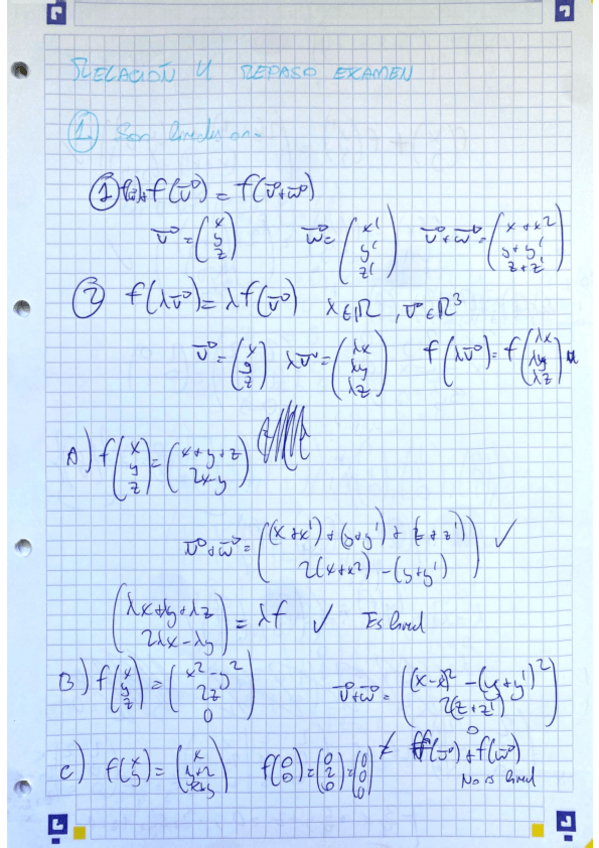 RELACIÓN 4 REPASO EXAMEN
1. Son
① f(v⃗) = f(v⃗+w⃗)
v⃗ = (x y z) w⃗ = (x' y' z') v⃗+w⃗ = (x+x2 y+y' z+z')
② f(λv⃗) = λf(v⃗) λ∈ℝ, v⃗∈ℝ³
v⃗ = (x y z) λv⃗ = (λx λy λz) f(λv⃗) = f(λx λy λz)
A) f(x y z) = (x+y+z 2x-y)
v⃗+w⃗ = ((x+x')+(y+y')+(z+z') 2(x+x2)-(y+y')) ✓
(λx+λy+λz 2λx-λy) = λf ✓ Es lineal
B) f(x y z) = (x²-y² 2z 0) v⃗+w⃗ = ((x-x)²-(y+y')² 2(z+z') 0)
≠ f(v⃗)+f(w⃗)
C) f(x y) = (x y+2 x+y) f(0 0) = (0 2 0) = (0 0 0) No es lineal